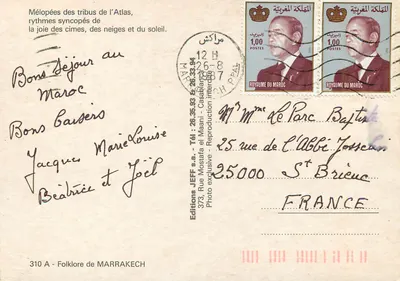 Mélopées des tribus de l'Atlas,
rythmes syncopés de
la joie des cimes, des neiges et du soleil.
Bon Séjour au
Maroc
Bons baisers
Jacques Marie Louise
Béatrice et Joël
310 A - Folklore de MARRAKECH
Editions JEFF s.a. Tél : 26.35.93 & 26.33.94
373, Rue Mostafa el Maani - Casablanca
Photo exclusive - Reproduction interdite
مراكش
12 H
26-8
1987
المملكة المغربية
1,00
POSTES
ROYAUME DU MAROC
المملكة المغربية
1,00
POSTES
ROYAUME DU MAROC
Mr Mme LeParc Baptiste
25 rue de L'Abbé Josselin
25000 St Brieuc
FRANCE